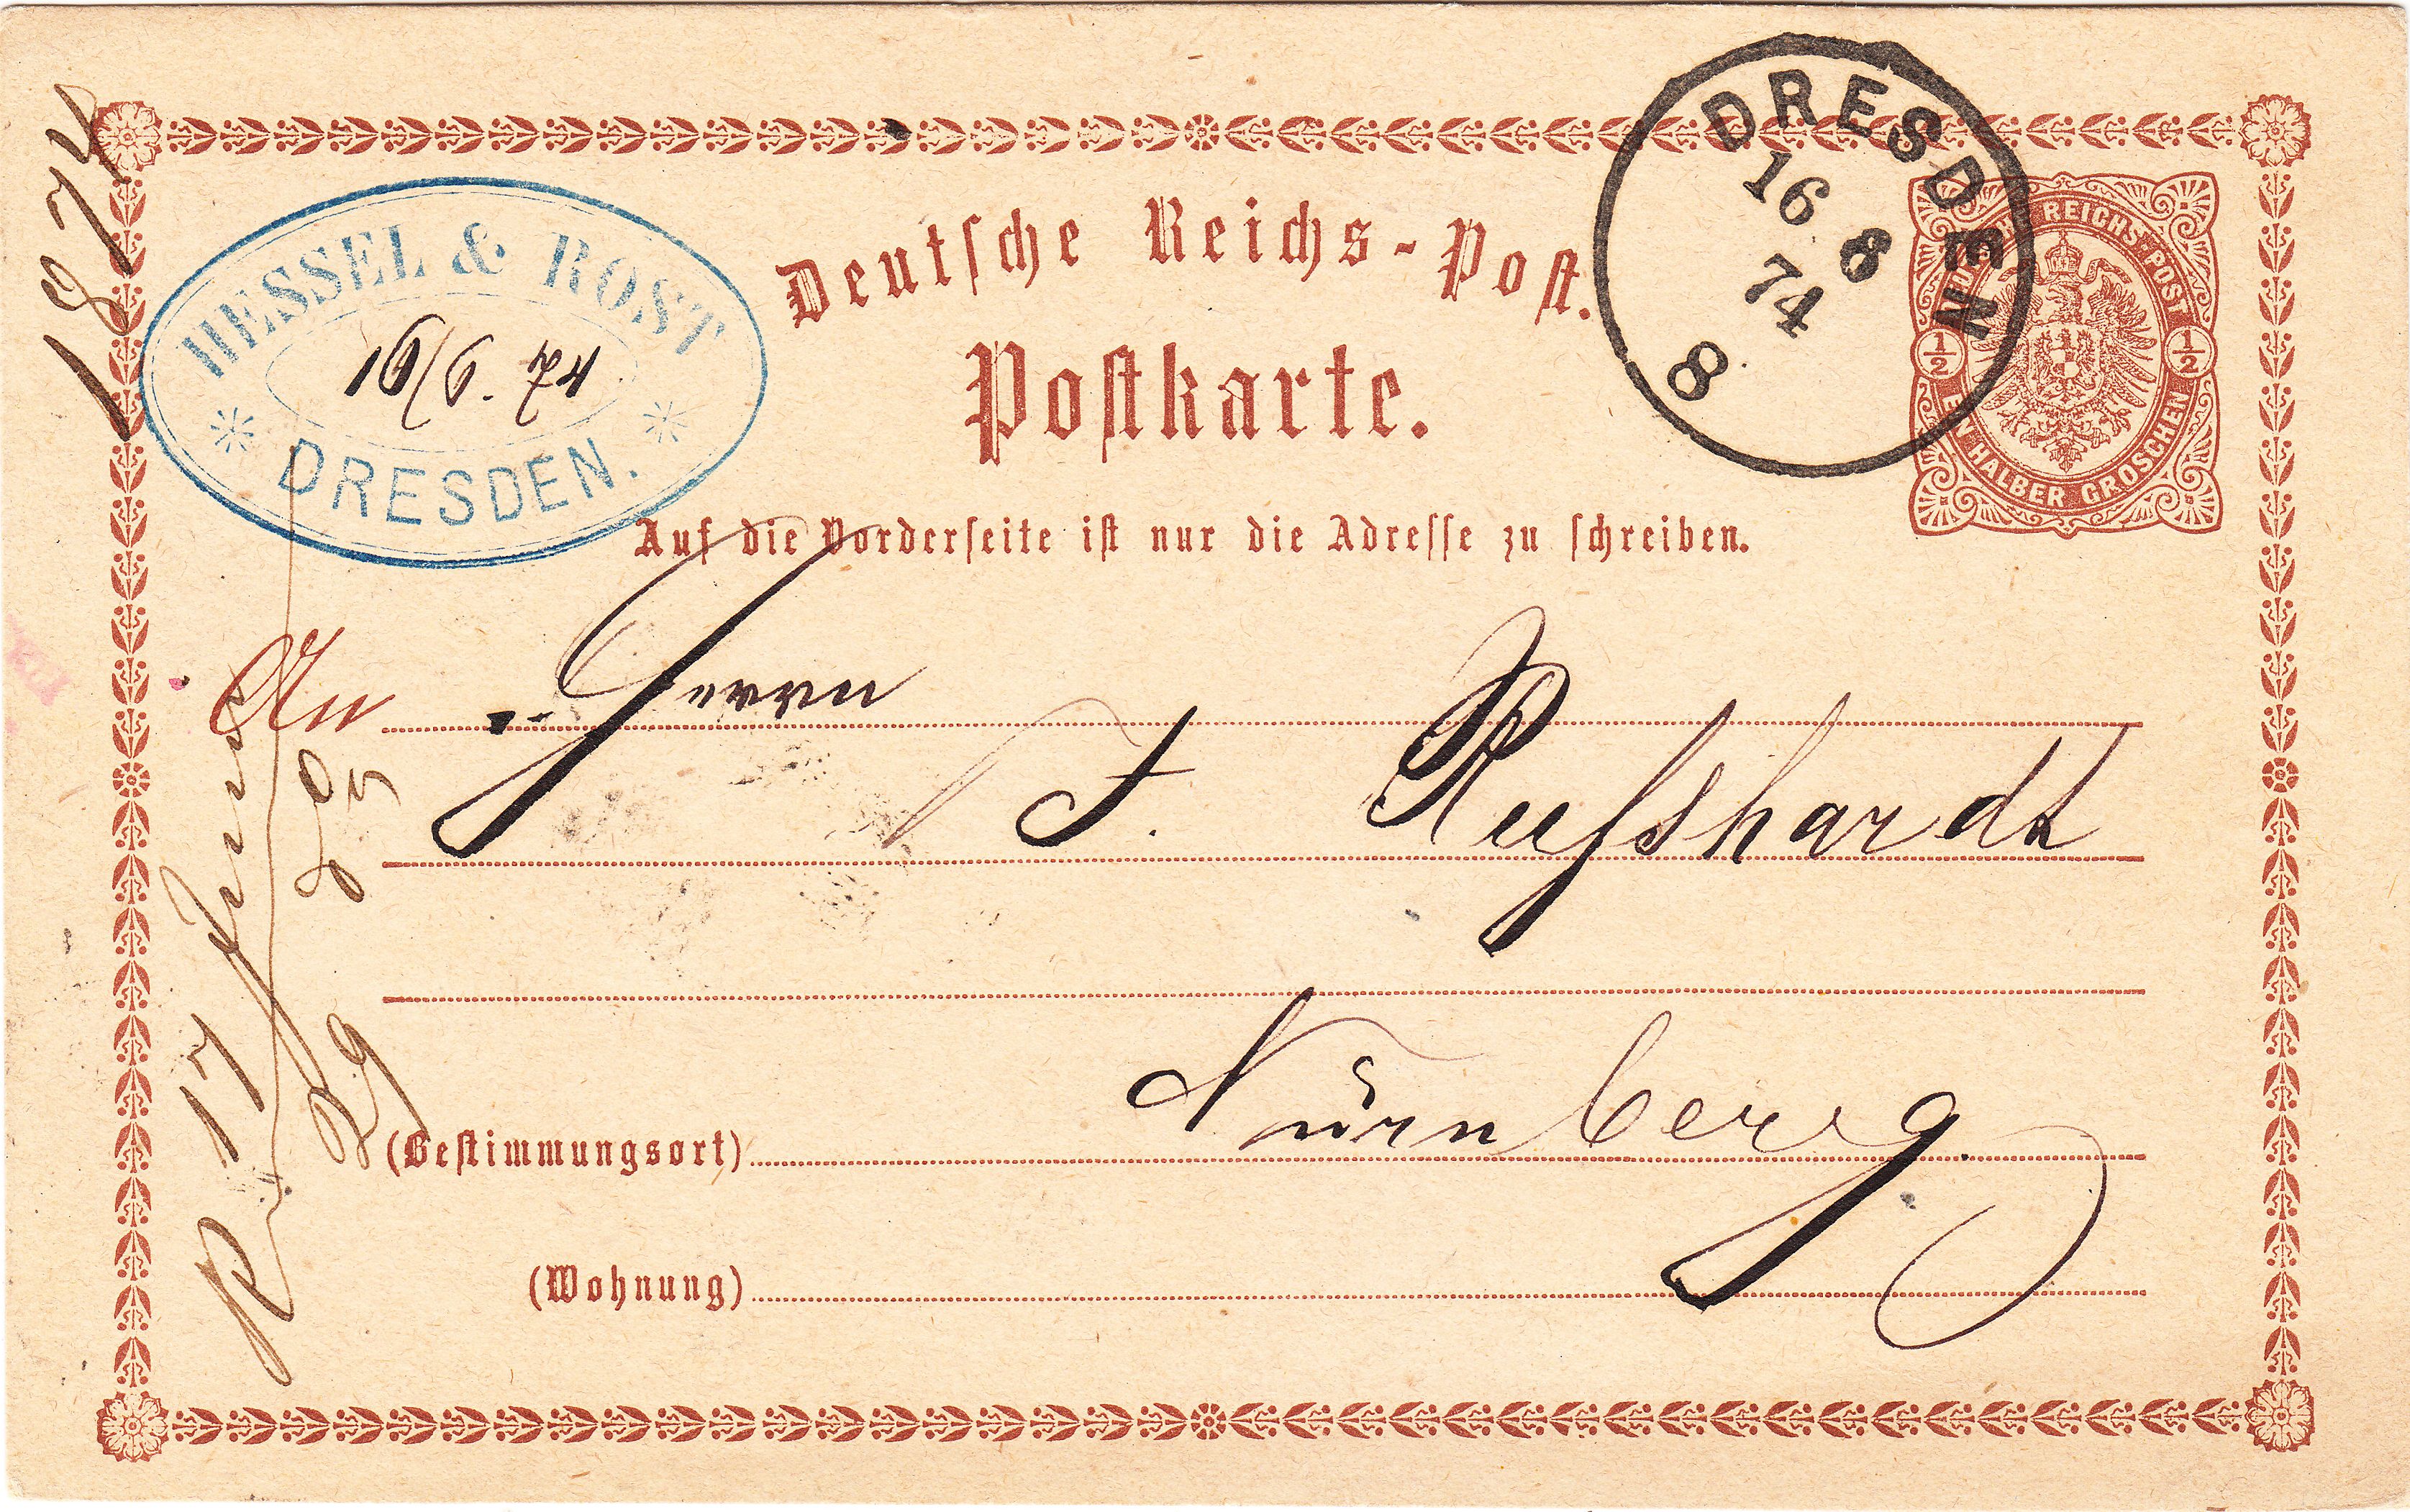 Deutsche Reichs-Post.
Postkarte.
Auf die Vorderseite ist nur die Adresse zu schreiben.
HESSEL & ROST
16/6. 74
DRESDEN.
DRESDEN
16 8
74
8
REICHS-POST
1/2 1/2
EIN HALBER GROSCHEN
1874
An Herrn
J. Rußhardt
Nürnberg
(Bestimmungsort)
(Wohnung)
17 Juni